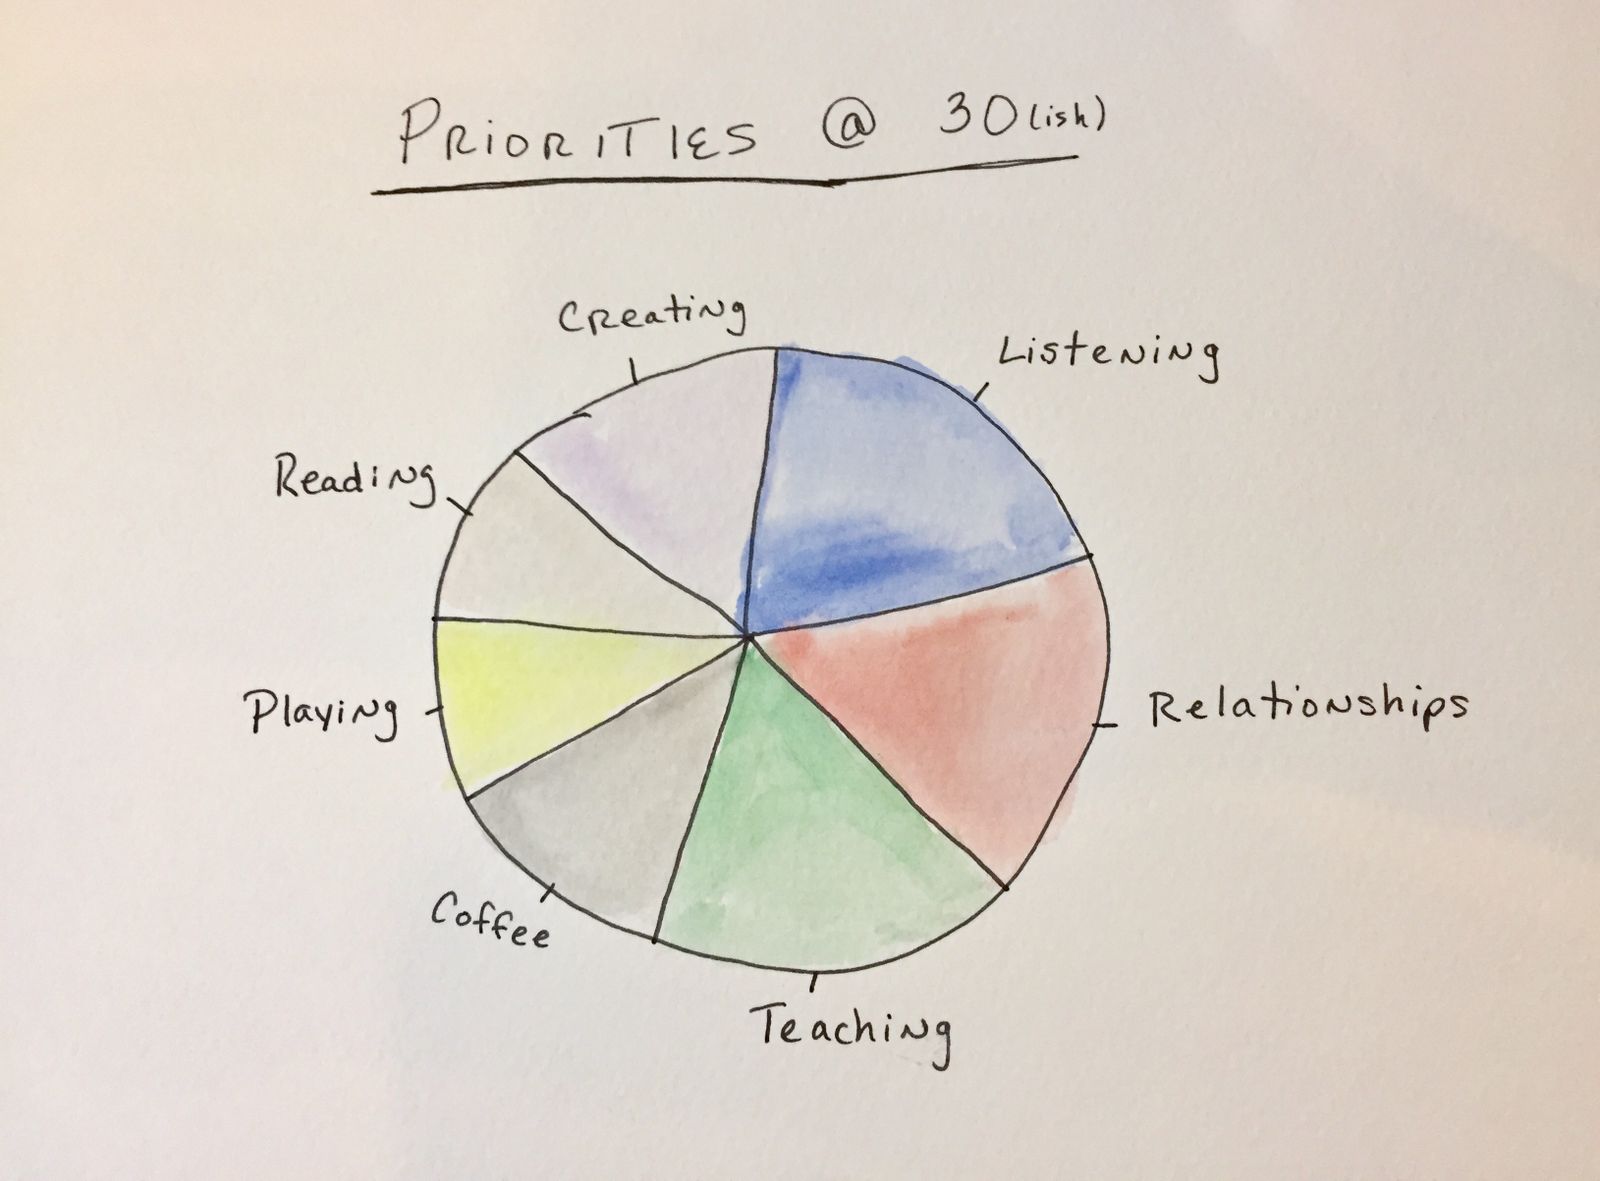 PRIORITIES @ 30(ish)
Creating
Listening
Reading
Relationships
Playing
Coffee
Teaching